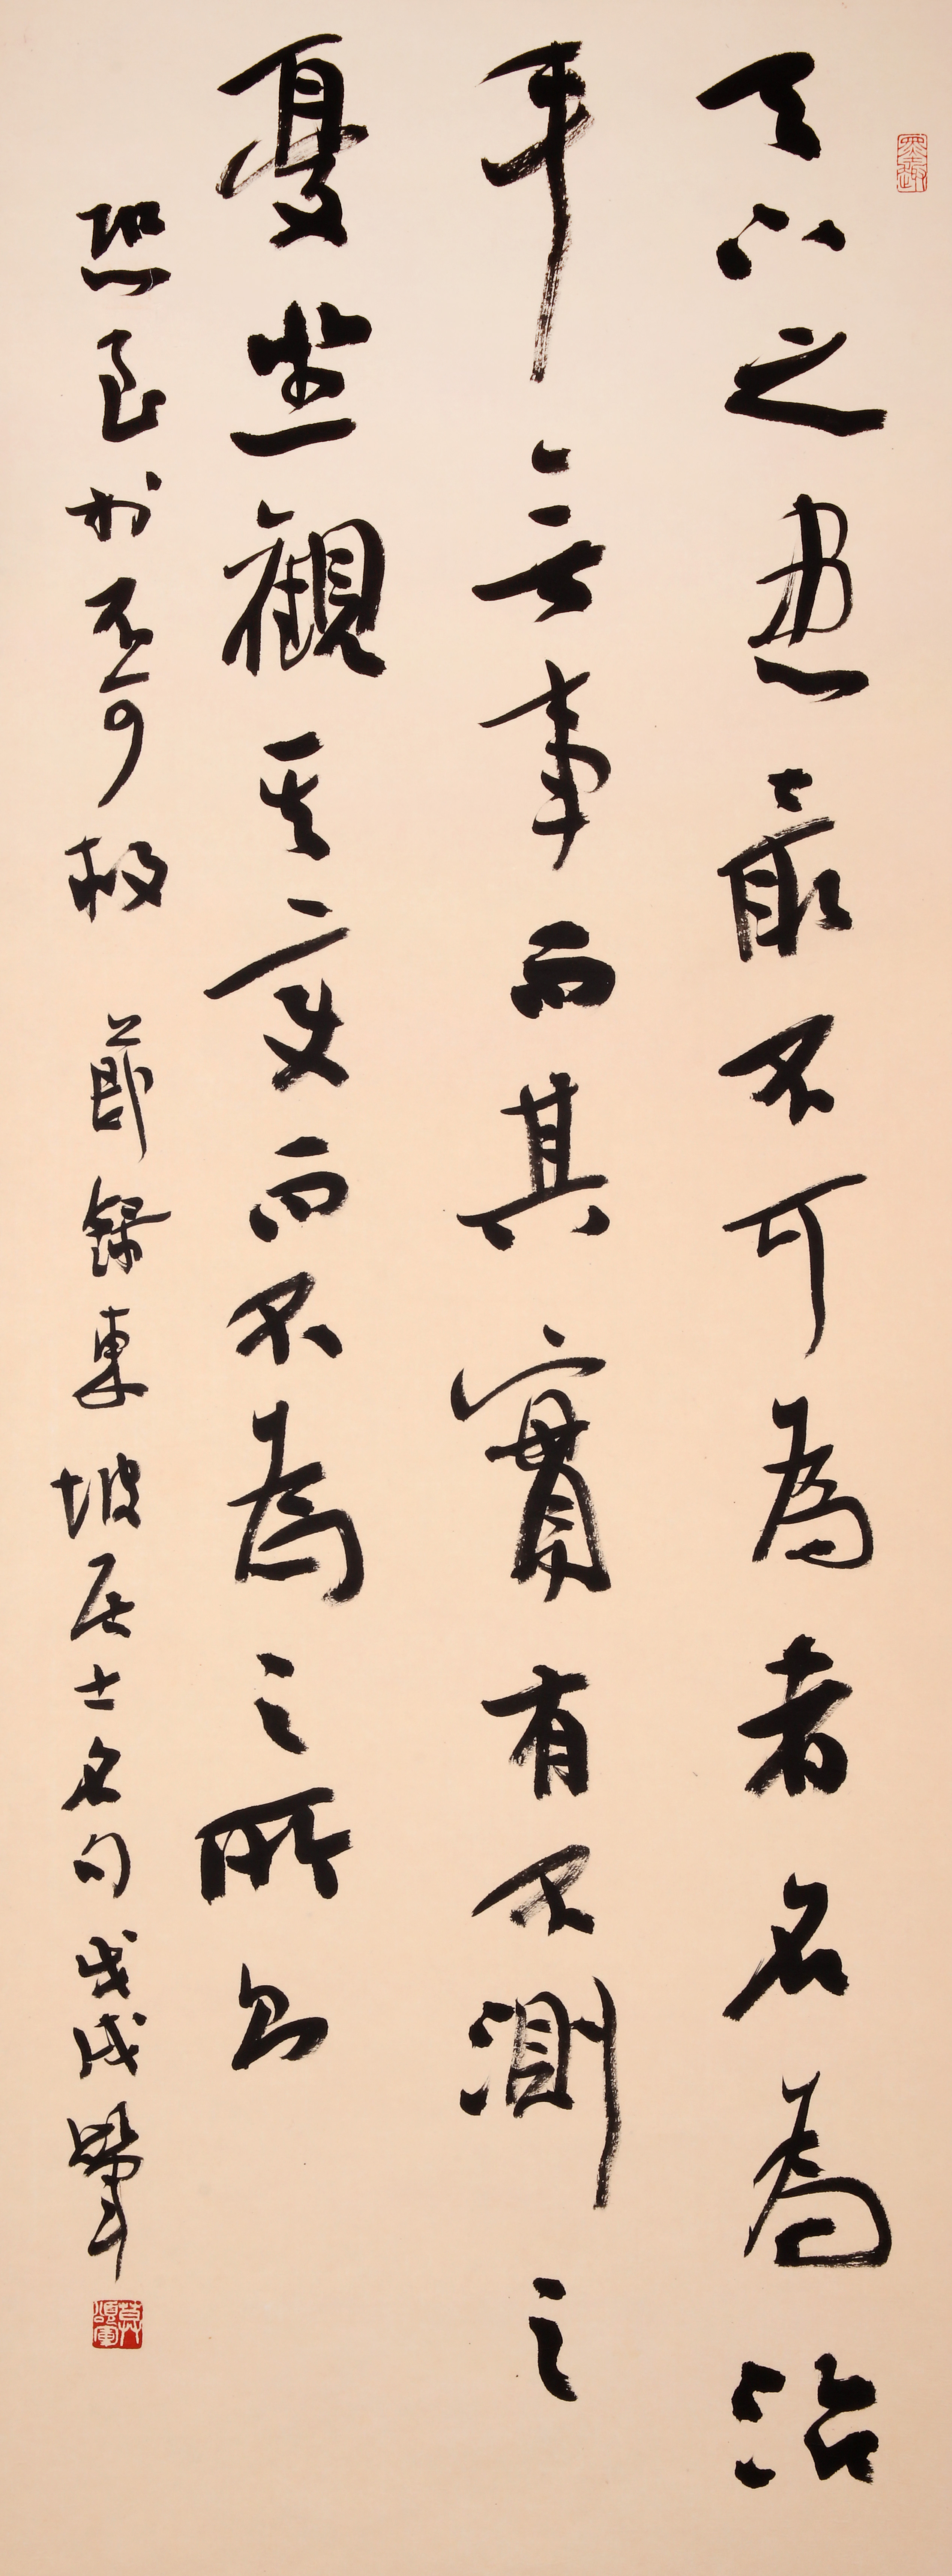 墨趣
天下之患最不可為者名為治
平無事而其實有不測之
憂坐觀其變而不為之所則
恐至於不可救 節錄東坡居士名句戊戌